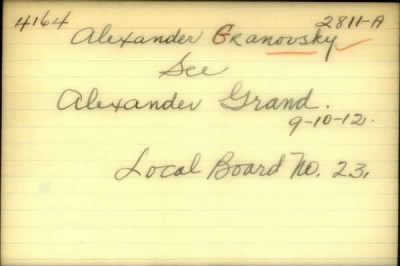 4164 2811-A
Alexander Granovsky
See
Alexander Grand.
9-10-12.
Local Board No. 23.